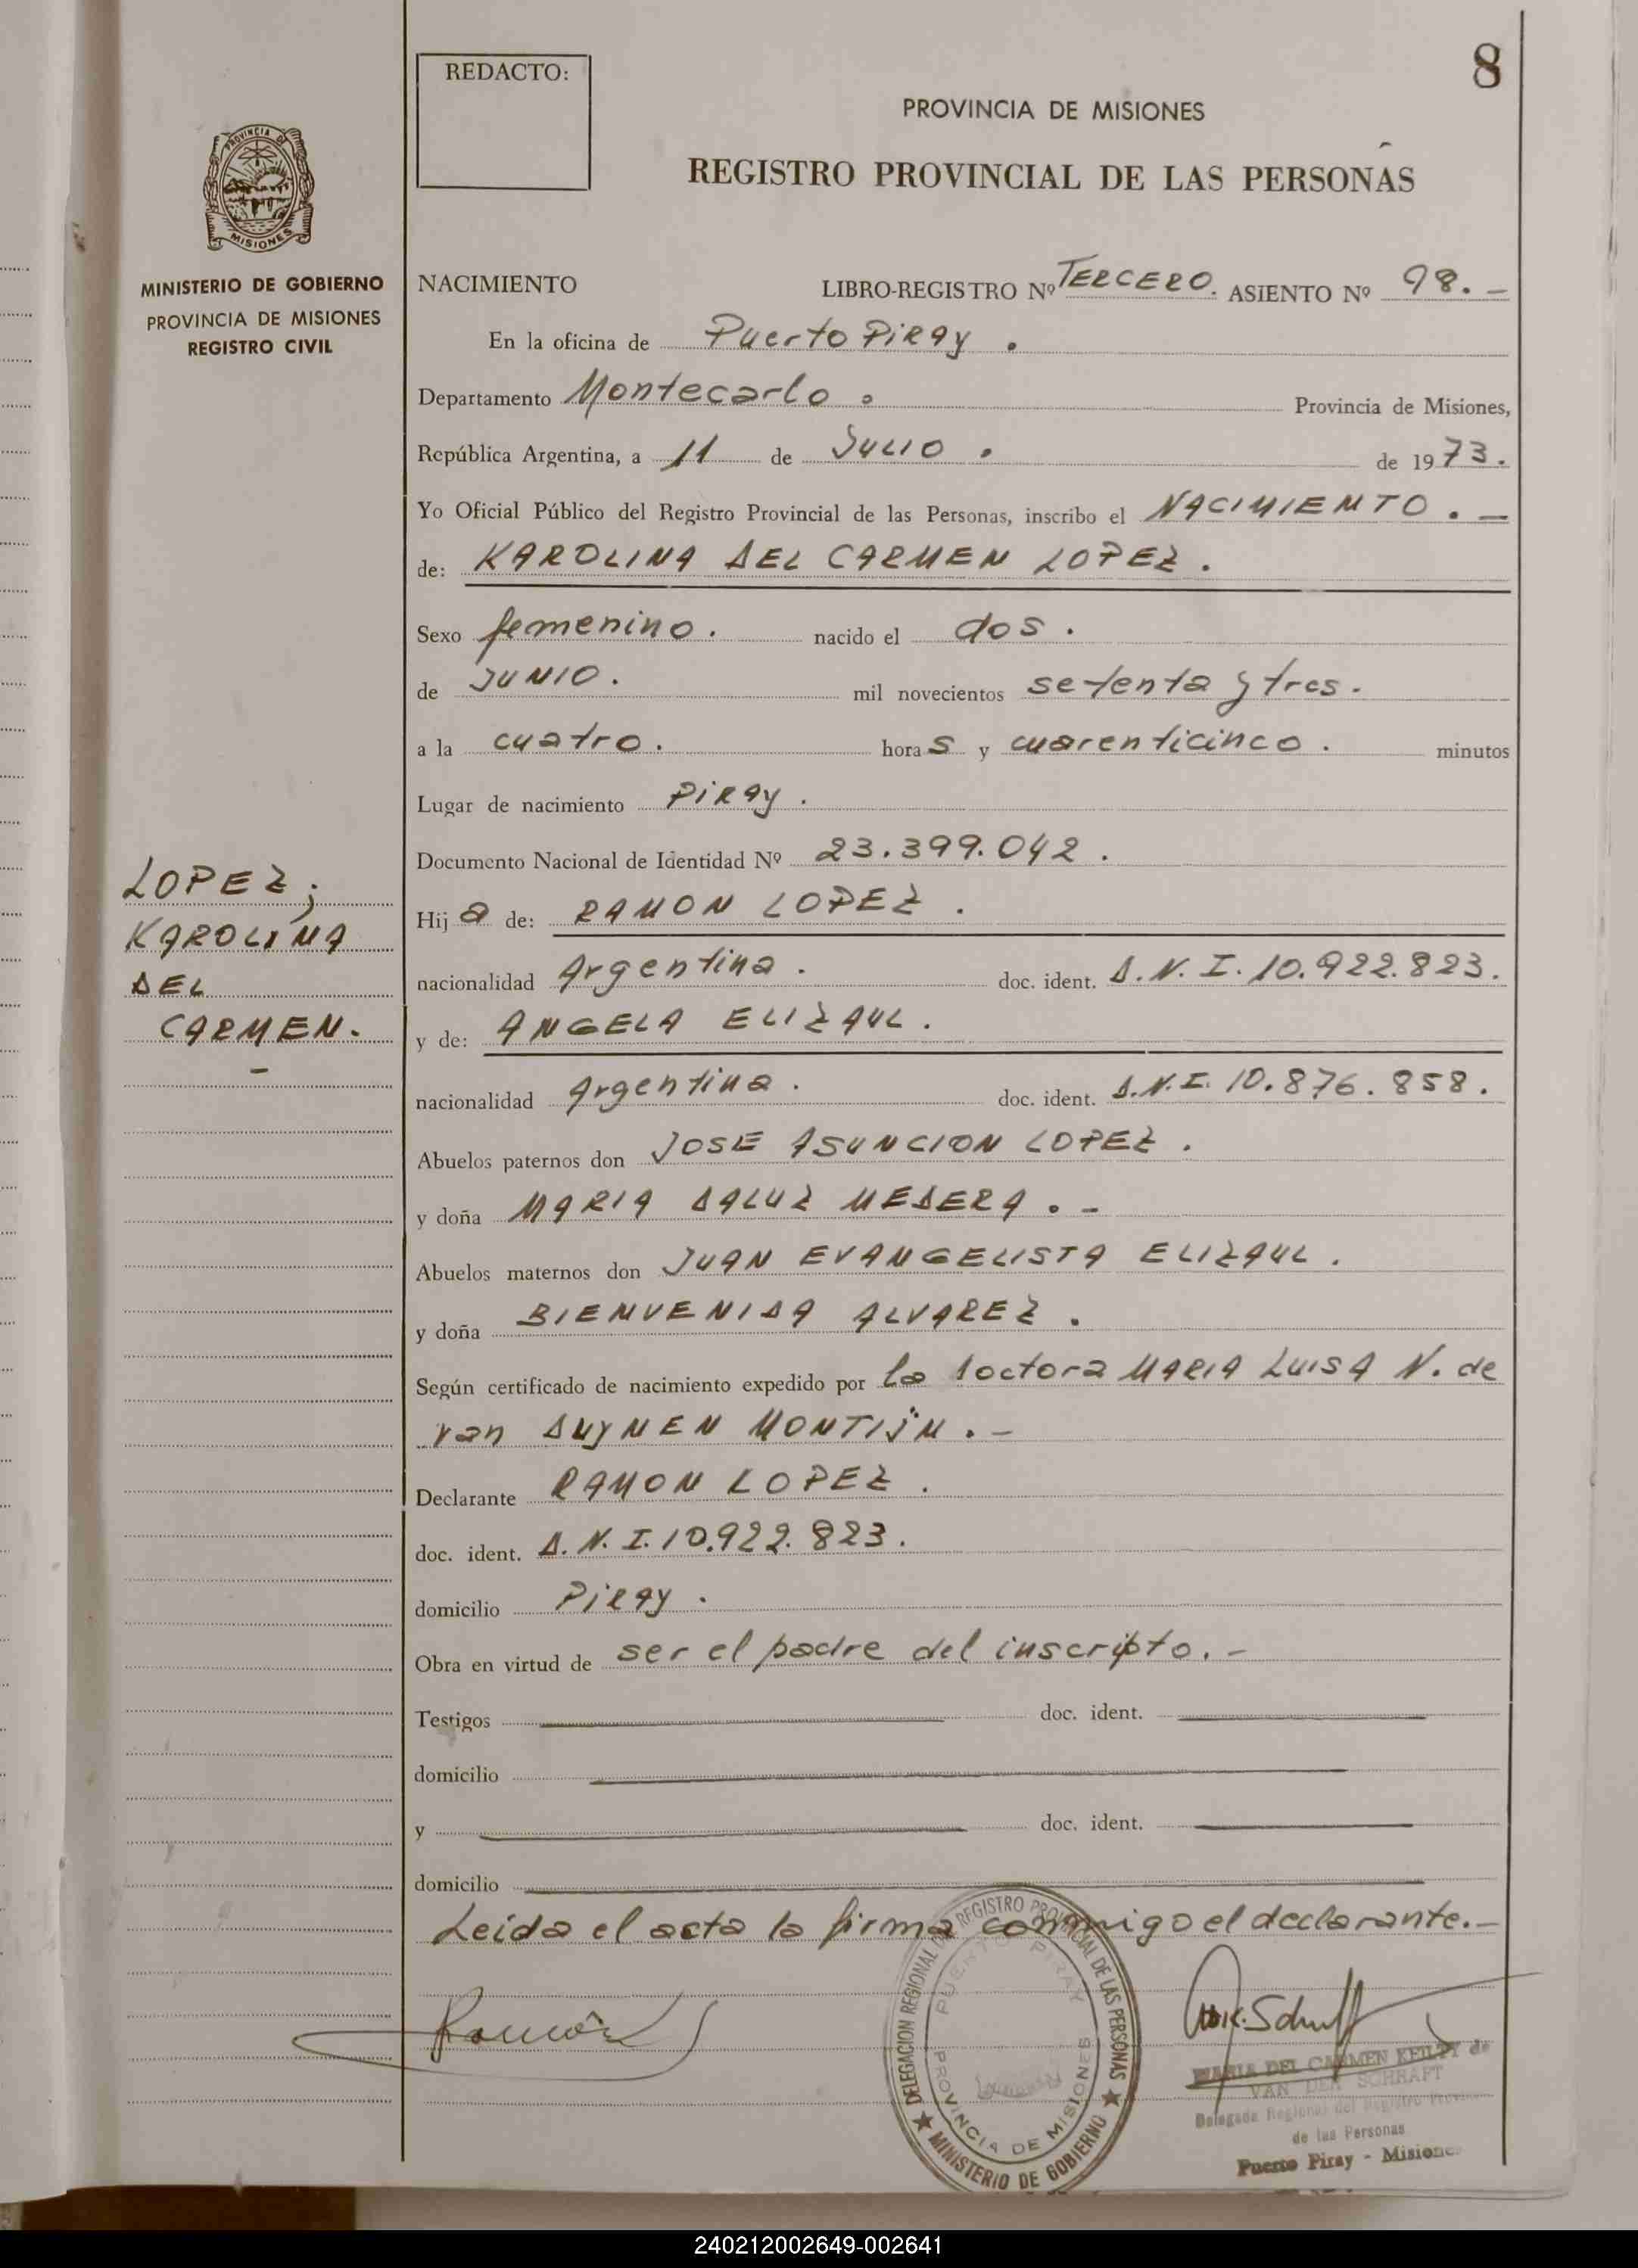 REDACTO:
8
PROVINCIA DE MISIONES
REGISTRO PROVINCIAL DE LAS PERSONAS
PROVINCIA DE
MISIONES
MINISTERIO DE GOBIERNO
PROVINCIA DE MISIONES
REGISTRO CIVIL
NACIMIENTO LIBRO-REGISTRO Nº TERCERO. ASIENTO Nº 98.-
En la oficina de Puerto Piray.
Departamento Montecarlo. Provincia de Misiones,
República Argentina, a 11 de Julio. de 1973.
Yo Oficial Público del Registro Provincial de las Personas, inscribo el NACIMIENTO.-
de: KAROLINA DEL CARMEN LOPEZ.
Sexo femenino. nacido el dos.
de JUNIO. mil novecientos setenta y tres.
a la cuatro. horas y cuarenticinco. minutos
Lugar de nacimiento Piray.
Documento Nacional de Identidad Nº 23.399.042.
LOPEZ;
KAROLINA
DEL
CARMEN.
-
Hija de: RAMON LOPEZ.
nacionalidad Argentina. doc. ident. D.N.I. 10.922.823.
y de: ANGELA ELIZAUL.
nacionalidad Argentina. doc. ident. D.N.I. 10.876.858.
Abuelos paternos don JOSE ASUNCION LOPEZ.
y doña MARIA DALUZ MEDERA.-
Abuelos maternos don JUAN EVANGELISTA ELIZAUL.
y doña BIENVENIDA ALVAREZ.
Según certificado de nacimiento expedido por la doctora MARIA LUISA N. de
van DUYNEN MONTIJN.-
Declarante RAMON LOPEZ.
doc. ident. D.N.I. 10.922.823.
domicilio Piray.
Obra en virtud de ser el padre del inscripto.-
Testigos doc. ident.
domicilio
y doc. ident.
domicilio
Leida el acta la firma conmigo el declarante.-
DELEGACION REGIONAL DEL REGISTRO PROVINCIAL DE LAS PERSONAS
PUERTO PIRAY
PROVINCIA DE MISIONES
★ MINISTERIO DE GOBIERNO ★
MARIA DEL CARMEN de
VAN DER SCHRAFT
Delegada Regional del Registro
de las Personas
Puerto Piray - Misiones
240212002649-002641